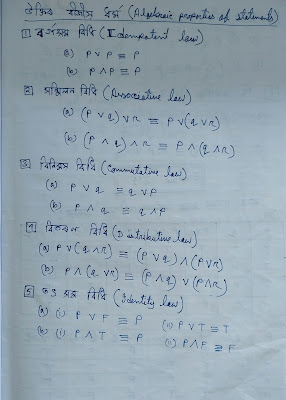 উক্তিৰ বীজীয় ধৰ্ম (Algebraic properties of statements)
1 বৰ্গসম বিধি (Idempotent law)
(a) P ∨ P ≡ P
(b) P ∧ P ≡ P
2 সন্মিলন বিধি (Associative law)
(a) (P ∨ q) ∨ R ≡ P ∨ (q ∨ R)
(b) (P ∧ q) ∧ R ≡ P ∧ (q ∧ R)
3 বিনিময় বিধি (Commutative law)
(a) P ∨ q ≡ q ∨ P
(b) P ∧ q ≡ q ∧ P
4 বিতৰণ বিধি (Distributive law)
(a) P ∨ (q ∧ R) ≡ (P ∨ q) ∧ (P ∨ R)
(b) P ∧ (q ∨ R) ≡ (P ∧ q) ∨ (P ∧ R)
5 বিধি (Identity law)
(a) (i) P ∨ F ≡ P (ii) P ∨ T ≡ T
(b) (i) P ∧ T ≡ P (ii) P ∧ F ≡ F